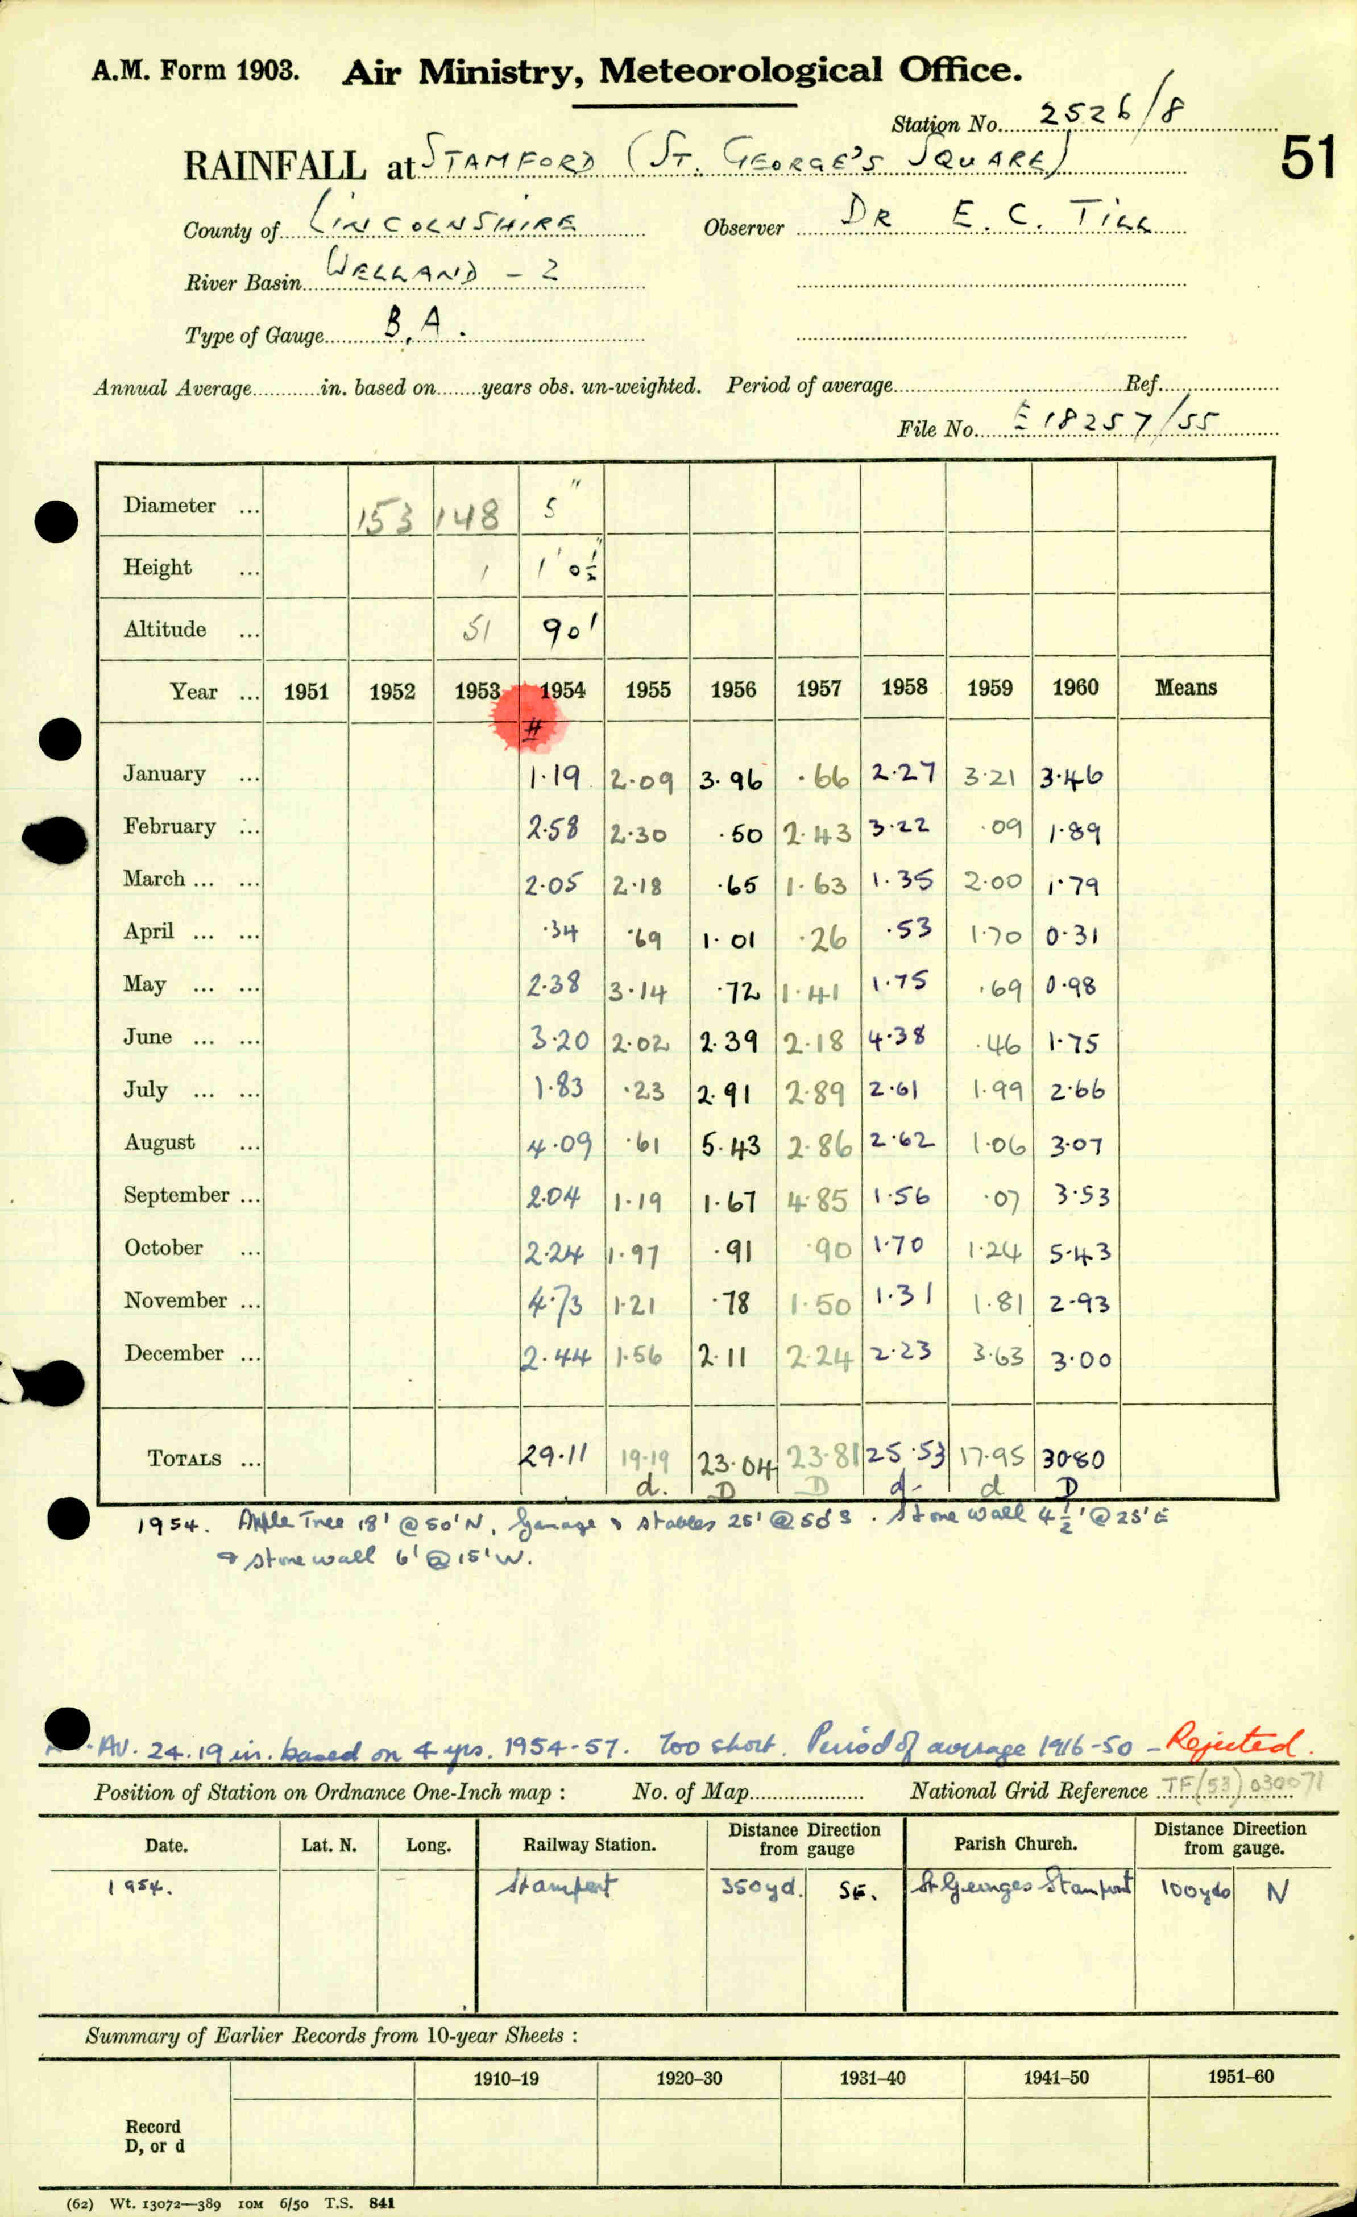 A.M. Form 1903. Air Ministry, Meteorological Office.
Station No. 2526/8
51
RAINFALL at STAMFORD (ST. GEORGE'S SQUARE)
County of LINCOLNSHIRE Observer DR E. C. TILL
River Basin WELLAND - 2
Type of Gauge B.A.
Annual Average in. based on years obs. un-weighted. Period of average Ref.
File No. E18257/55
Diameter ... 153 148 5"
Height ... 1 1' 0½"
Altitude ... 51 90'
Year ... 1951 1952 1953 1954 1955 1956 1957 1958 1959 1960 Means
#
January ... 1.19 2.09 3.96 .66 2.27 3.21 3.46
February ... 2.58 2.30 .50 2.43 3.22 .09 1.89
March ... ... 2.05 2.18 .65 1.63 1.35 2.00 1.79
April ... ... .34 .69 1.01 .26 .53 1.70 0.31
May ... ... 2.38 3.14 .72 1.41 1.75 .69 0.98
June ... ... 3.20 2.02 2.39 2.18 4.38 .46 1.75
July ... ... 1.83 .23 2.91 2.89 2.61 1.99 2.66
August ... 4.09 .61 5.43 2.86 2.62 1.06 3.07
September ... 2.04 1.19 1.67 4.85 1.56 .07 3.53
October ... 2.24 1.97 .91 .90 1.70 1.24 5.43
November ... 4.73 1.21 .78 1.50 1.31 1.81 2.93
December ... 2.44 1.56 2.11 2.24 2.23 3.63 3.00
TOTALS ... 29.11 19.19 23.04 23.81 25.53 17.95 30.80
d. D D d. d D
1954. Apple Tree 18' @ 50' N, Garage & stables 25' @ 50' S. Stone wall 4½' @ 25' E
& stone wall 6' @ 15' W.
Av. 24.19 in. based on 4 yrs. 1954-57. Too short. Period of average 1916-50 - Rejected.
Position of Station on Ordnance One-Inch map : No. of Map National Grid Reference TF(53)030071
Date. Lat. N. Long. Railway Station. Distance from gauge Direction Parish Church. Distance from gauge. Direction
1954. Stamford 350yd. SE. St Georges Stamford 100yds N
Summary of Earlier Records from 10-year Sheets :
1910–19 1920–30 1931–40 1941–50 1951–60
Record
D, or d
(62) Wt. 13072—389 10M 6/50 T.S. 841